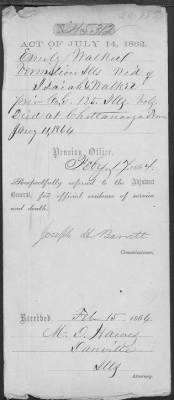 ACT OF JULY 14, 1862.
Emily Walker
Vermilion Ills Wid of
Isaiah Walker
priv Co. 125. Ills. Vols.
Died at Chattanooga Tenn
Jany 11, 1864
Pension Office,
Feby 17, 1864.
Respectfully referred to the Adjutant
General, for official evidence of service
and death.
Joseph H. Barrett
Commissioner.
Received, Feb 15 1864
M. D.
Danville
Ills
Attorney.